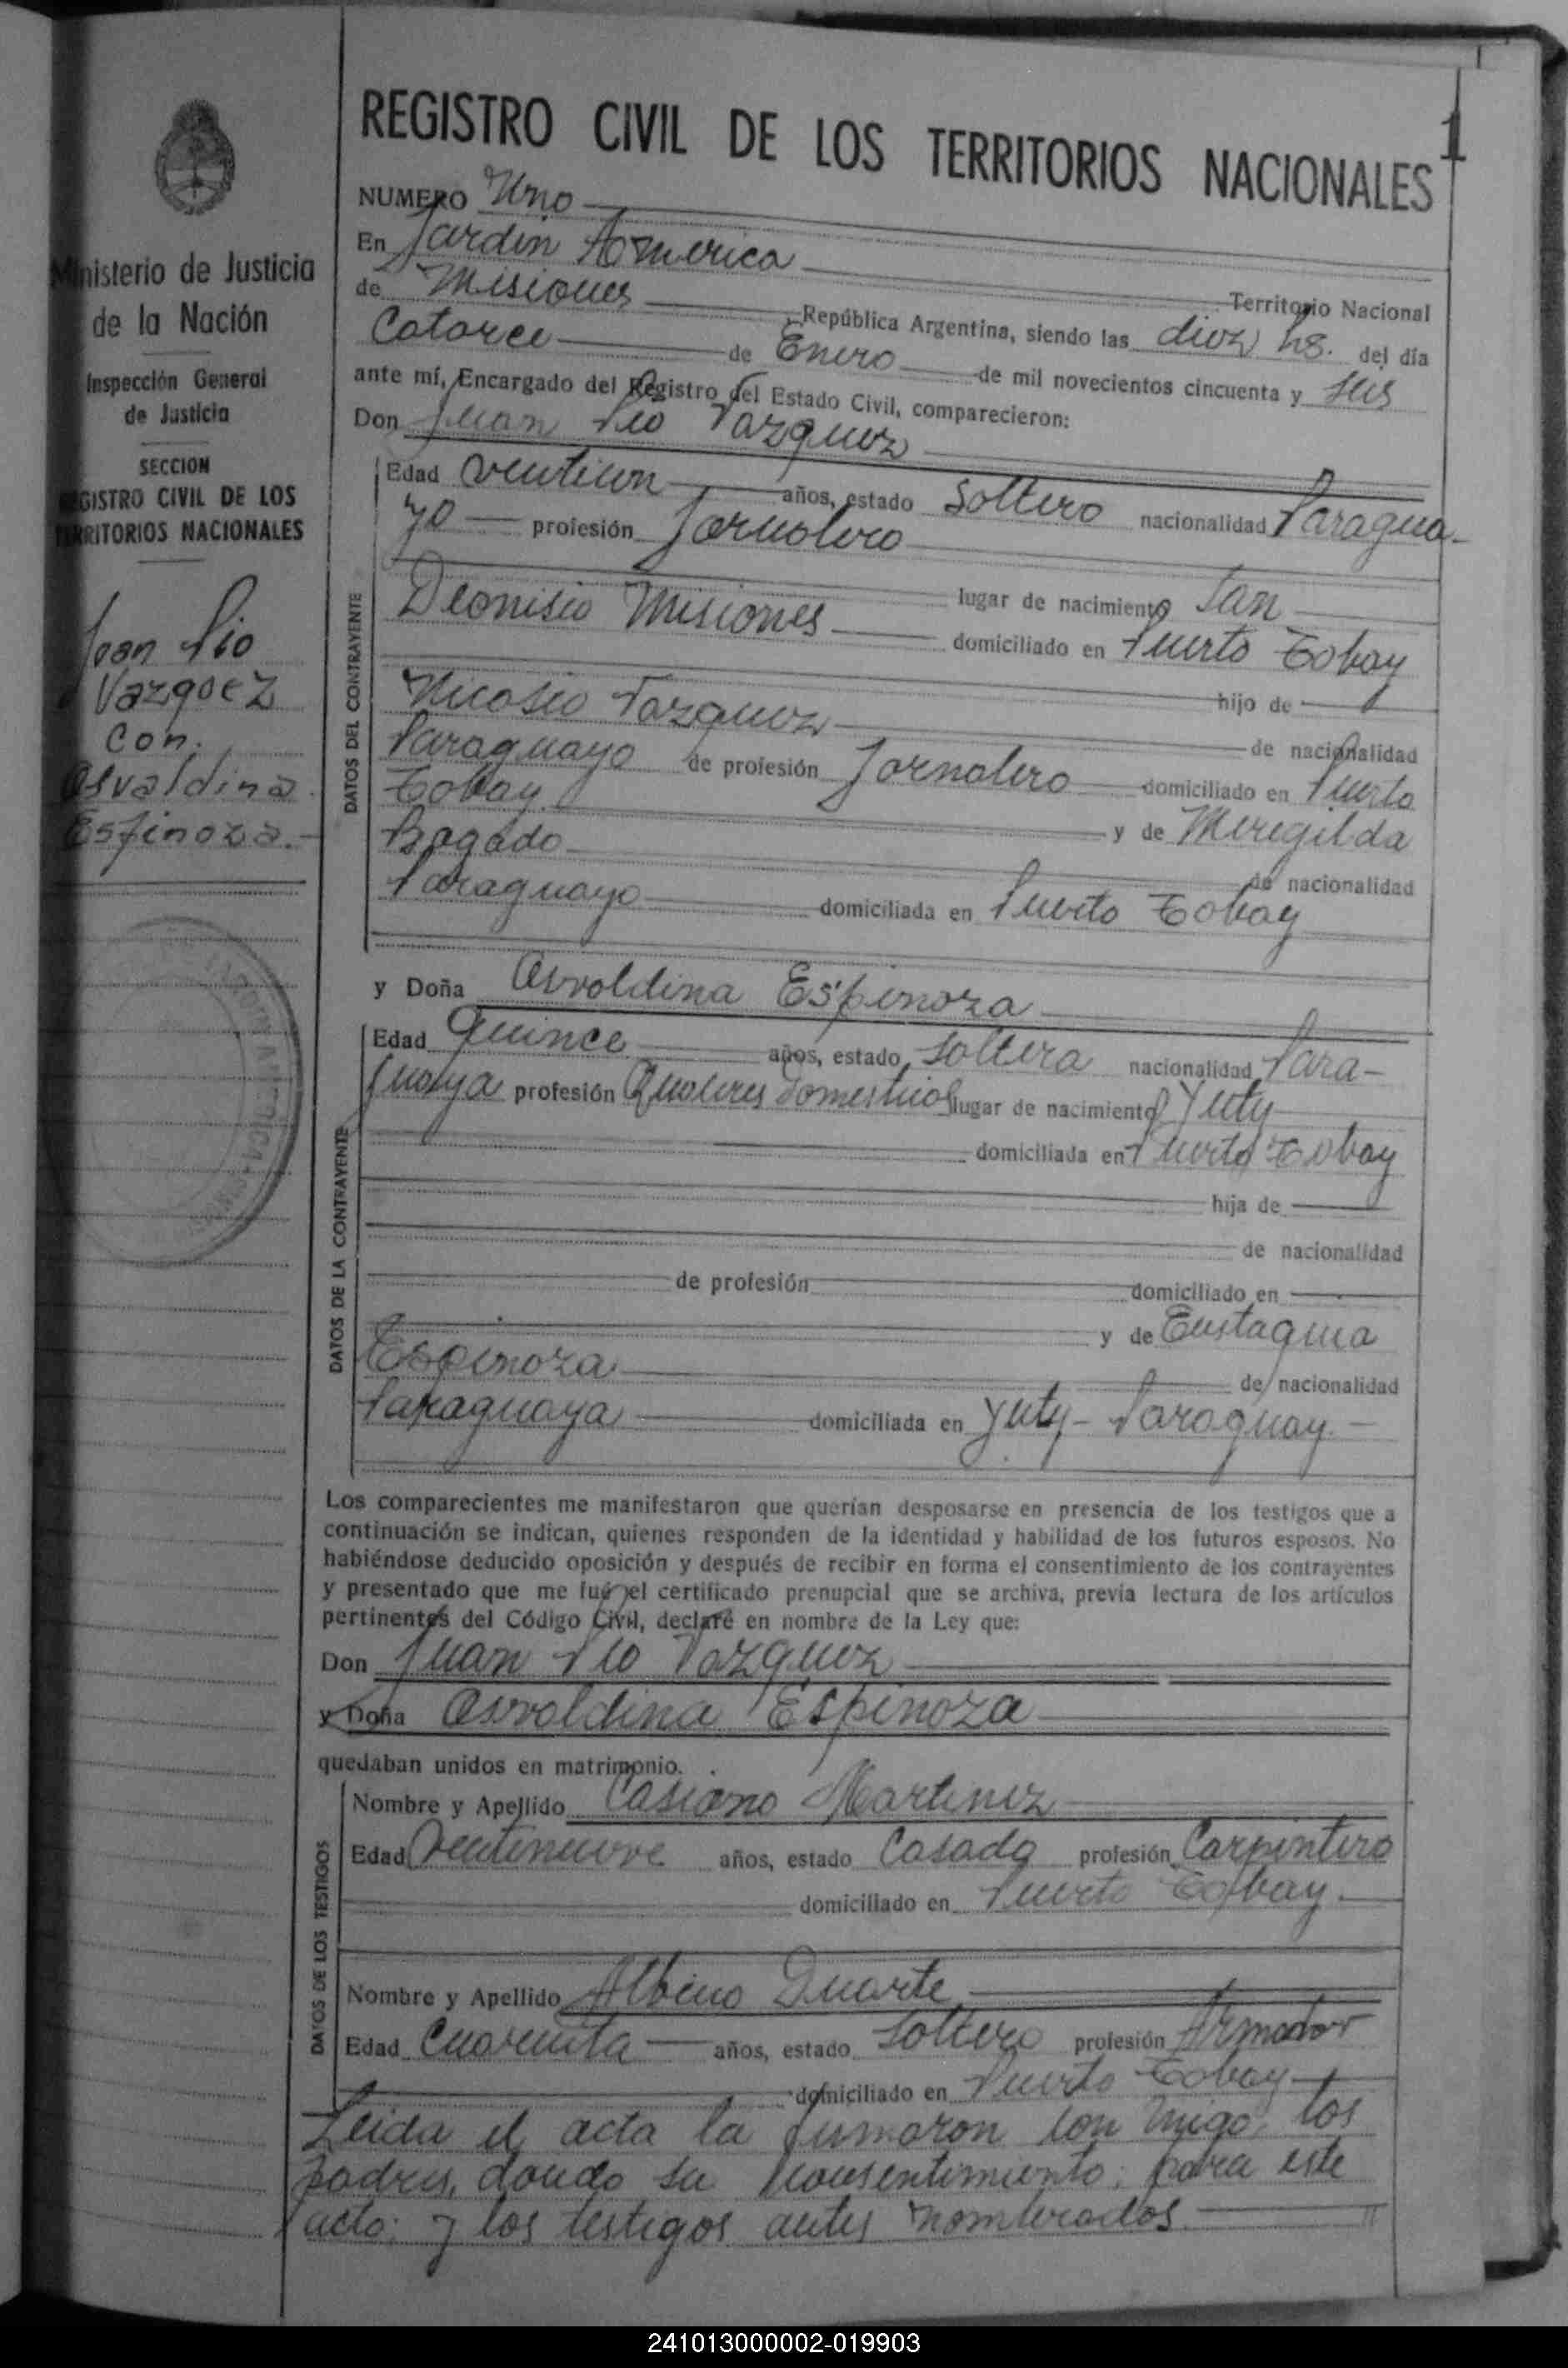 1
REGISTRO CIVIL DE LOS TERRITORIOS NACIONALES
NUMERO Uno
En Jardin America
Territorio Nacional
de Misiones República Argentina, siendo las diez hs. del día
Catorce de Enero de mil novecientos cincuenta y seis
ante mí, Encargado del Registro del Estado Civil, comparecieron:
Don Juan Pio Vazquez
DATOS DEL CONTRAYENTE
Edad ventiun años, estado Soltero nacionalidad Paragua-
yo profesión Jornalero
lugar de nacimiento San
Dionisio Misiones domiciliado en Puerto Tobay
hijo de
Nicasio Vazquez de nacionalidad
Paraguayo de profesión Jornalero domiciliado en Puerto
Tobay y de Meregilda
Bogado de nacionalidad
Paraguaya domiciliada en Puerto Tobay
y Doña Osvaldina Espinoza
DATOS DE LA CONTRAYENTE
Edad Quince años, estado Soltera nacionalidad Para-
guaya profesión Quaceres Domesticos lugar de nacimiento Yuty
domiciliada en Puerto Tobay
hija de
de nacionalidad
de profesión domiciliado en
y de Eustaquia
Espinoza de nacionalidad
Paraguaya domiciliada en Yuty - Paraguay. -
Los comparecientes me manifestaron que querían desposarse en presencia de los testigos que a
continuación se indican, quienes responden de la identidad y habilidad de los futuros esposos. No
habiéndose deducido oposición y después de recibir en forma el consentimiento de los contrayentes
y presentado que me fué el certificado prenupcial que se archiva, previa lectura de los artículos
pertinentes del Código Civil, declaré en nombre de la Ley que:
Don Juan Pio Vazquez
y Doña Osvaldina Espinoza
quedaban unidos en matrimonio.
DATOS DE LOS TESTIGOS
Nombre y Apellido Casiano Martinez
Edad Veintinueve años, estado Casado profesión Carpintero
domiciliado en Puerto Tobay.
Nombre y Apellido Albino Duarte
Edad Cuarenta años, estado Soltero profesión Armador
domiciliado en Puerto Tobay
Leida el acta la firmaron con migo los
padres, dando su consentimiento; para este
acto; y los testigos antes nombrados.
Ministerio de Justicia
de la Nación
Inspección General
de Justicia
SECCION
REGISTRO CIVIL DE LOS
TERRITORIOS NACIONALES
Joan Pio
Vazquez
Con.
Osvaldina
Espinoza.
241013000002-019903